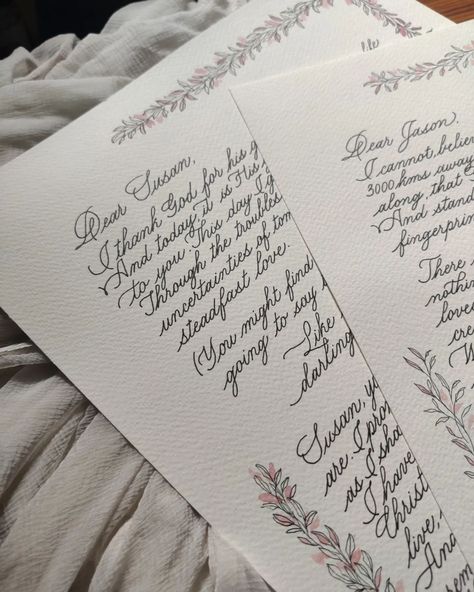 Dear Susan,
I thank God for his g
And today, it is His
to you. This day I g
Through the troubles
uncertainties of tom
steadfast love.
(You might find
going to say s
Like
darling
Susan, yo
are. I pro
as I sha
I have
Christ
live,
And
Dear Jason,
I cannot believe
3000kms away
along, that
And stand
fingerprin
There
nothin
love
cre
W